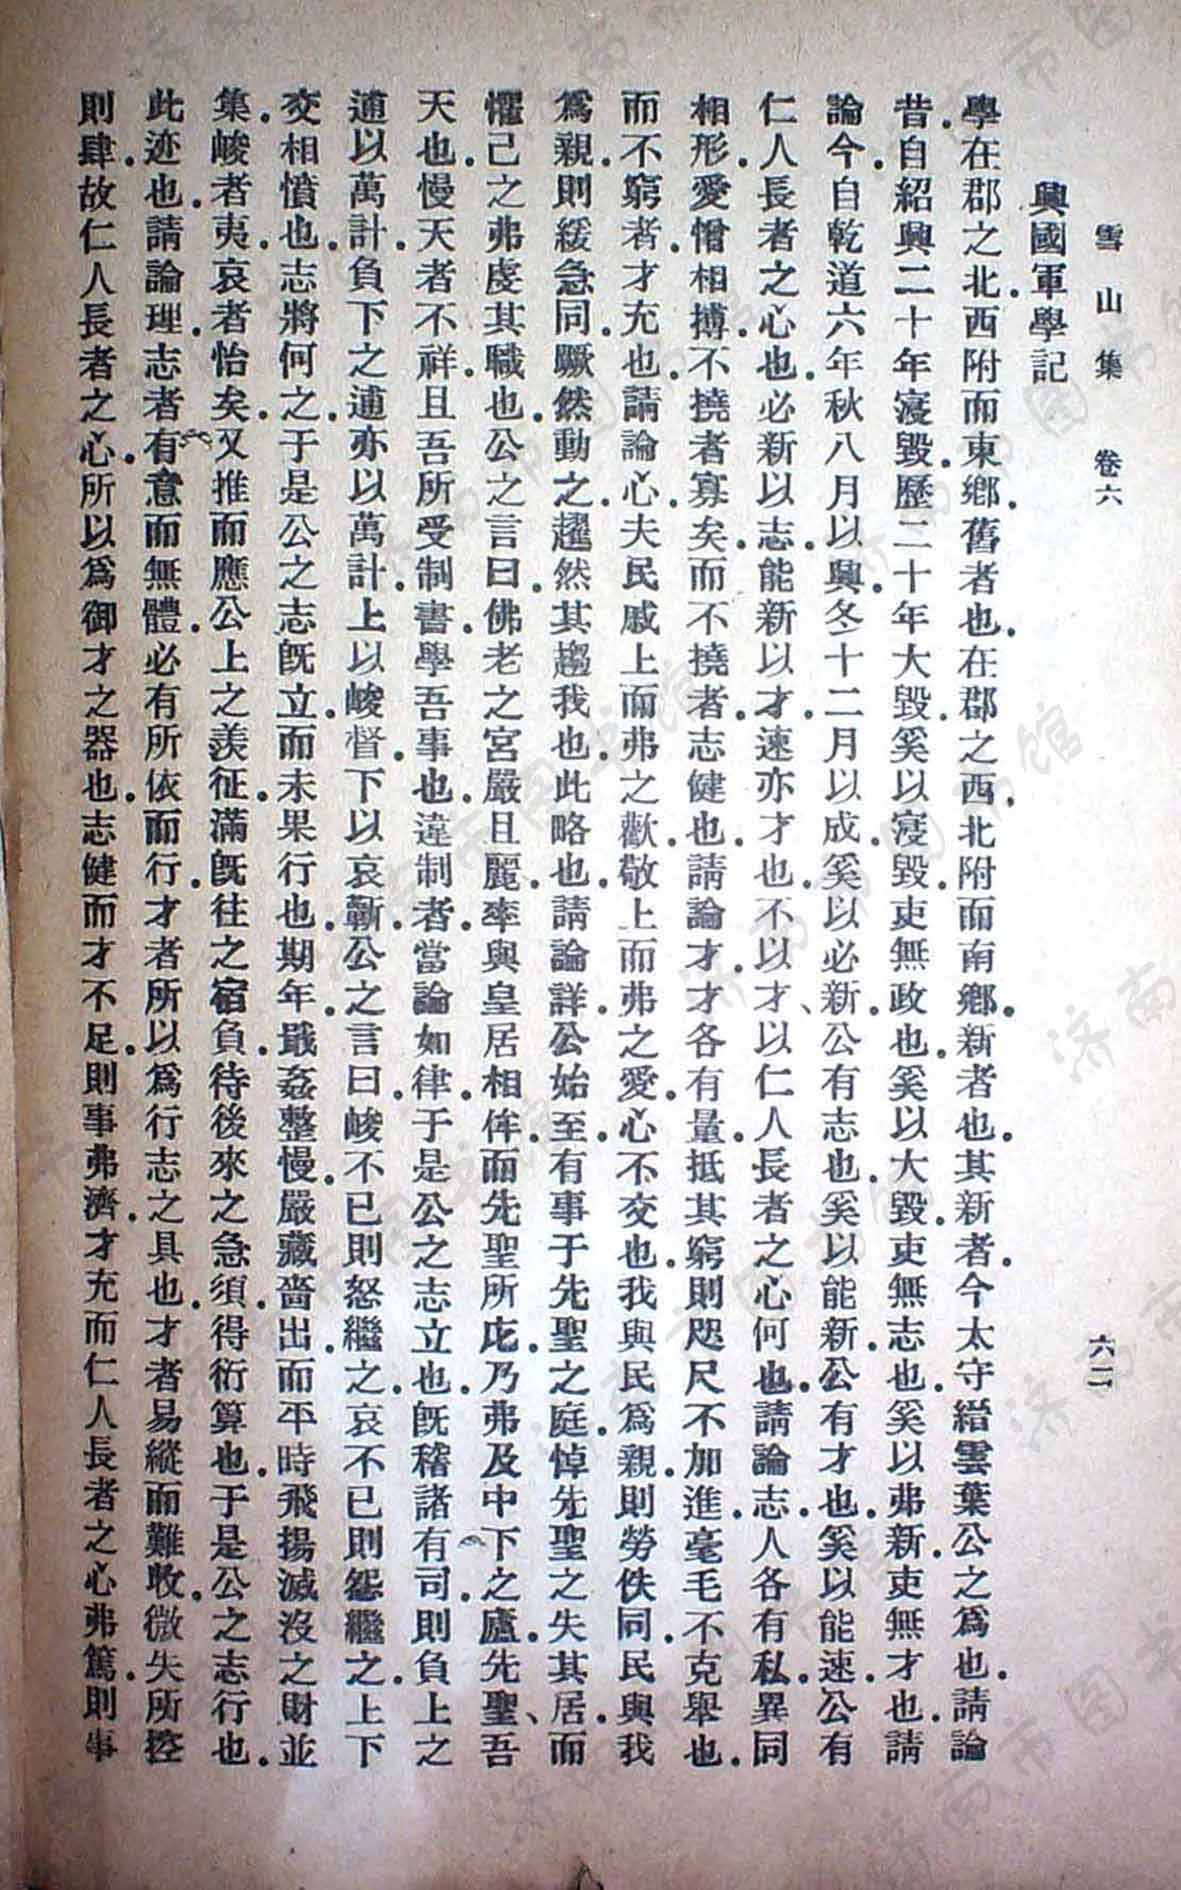 雪山集 卷六 六二
興國軍學記
學在郡之北.西附而東鄉.舊者也.在郡之西.北附而南鄉.新者也.其新者.今太守縉雲葉公之爲也.請論
昔.自紹興二十年寖毀.歷二十年大毀.奚以寖毀.吏無政也.奚以大毀.吏無志也.奚以弗新.吏無才也.請
論今.自乾道六年秋八月以興.冬十二月以成.奚以必新.公有志也.奚以能新.公有才也.奚以能速.公有
仁人長者之心也.必新以志.能新以才.速亦才也.不以才、以仁人長者之心何也.請論志.人各有私.異同
相形.愛憎相搏.不撓者寡矣.而不撓者.志健也.請論才.才各有量.抵其窮則咫尺不加進.毫毛不克舉也.
而不窮者.才充也.請論心.夫民戚上而弗之歡.敬上而弗之愛.心不交也.我與民爲親.則勞佚同.民與我
爲親.則緩急同.蹶然動之.趯然其趨我也.此略也.請論詳.公始至.有事于先聖之庭.悼先聖之失其居.而
懼己之弗虔其職也.公之言曰.佛老之宮嚴且麗.率與皇居相侔.而先聖所庇.乃弗及中下之廬.先聖、吾
天也.慢天者不祥.且吾所受制書.學吾事也.違制者.當論如律.于是公之志立也.既稽諸有司.則負上之
逋以萬計.負下之逋亦以萬計.上以峻督.下以哀蘄.公之言曰.峻不已則怒繼之.哀不已則怨繼之.上下
交相憤也.志將何之.于是公之志既立.而未果行也.期年.戢姦整慢.嚴藏嗇出.而平時飛揚滅沒之財並
集.峻者夷.哀者怡矣.又推而應公上之羨征.滿既往之宿負.待後來之急須.得衍算也.于是公之志行也.
此迹也.請論理.志者.有意而無體.必有所依而行.才者.所以爲行志之具也.才者易縱而難收.微失所控
則肆.故仁人長者之心.所以爲御才之器也.志健而才不足.則事弗濟.才充而仁人長者之心弗篤.則事